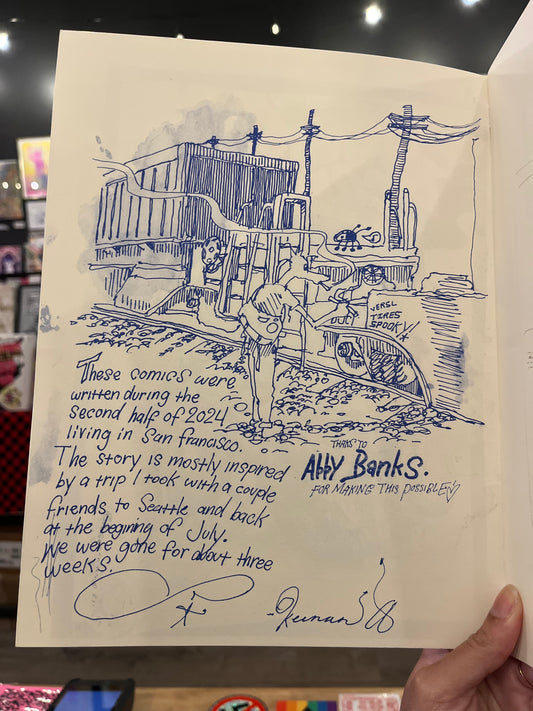 VERSL
TIRES
SPOOKY!
These comics were
written during the
second half of 2024
living in San francisco.
The story is mostly inspired
by a trip I took with a couple
friends to Seattle and back
at the begining of July.
We were gone for about three
weeks.
THANKS TO
Abby Banks.
FOR MAKING THIS POSSIBLE